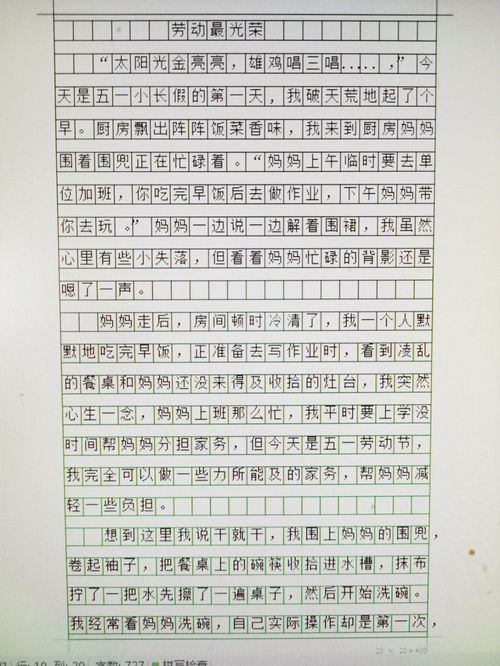 劳动最光荣
“太阳光金亮亮，雄鸡唱三唱.....，”今
天是五一小长假的第一天，我破天荒地起了个
早。厨房飘出阵阵饭菜香味，我来到厨房妈妈
围着围兜正在忙碌着。“妈妈上午临时要去单
位加班，你吃完早饭后去做作业，下午妈妈带
你去玩。”妈妈一边说一边解着围裙，我虽然
心里有些小失落，但看着妈妈忙碌的背影还是
嗯了一声。
妈妈走后，房间顿时冷清了，我一个人默
默地吃完早饭，正准备去写作业时，看到凌乱
的餐桌和妈妈还没来得及收拾的灶台，我突然
心生一念，妈妈上班那么忙，我平时要上学没
时间帮妈妈分担家务，但今天是五一劳动节，
我完全可以做一些力所能及的家务，帮妈妈减
轻一些负担。
想到这里我说干就干，我围上妈妈的围兜，
卷起袖子，把餐桌上的碗筷收拾进水槽，抹布
拧了一把水先擦了一遍桌子，然后开始洗碗。
我经常看妈妈洗碗，自己实际操作却是第一次，
20 × 20 = 400
行: 19 列: 20 字数: 727 拼写检查